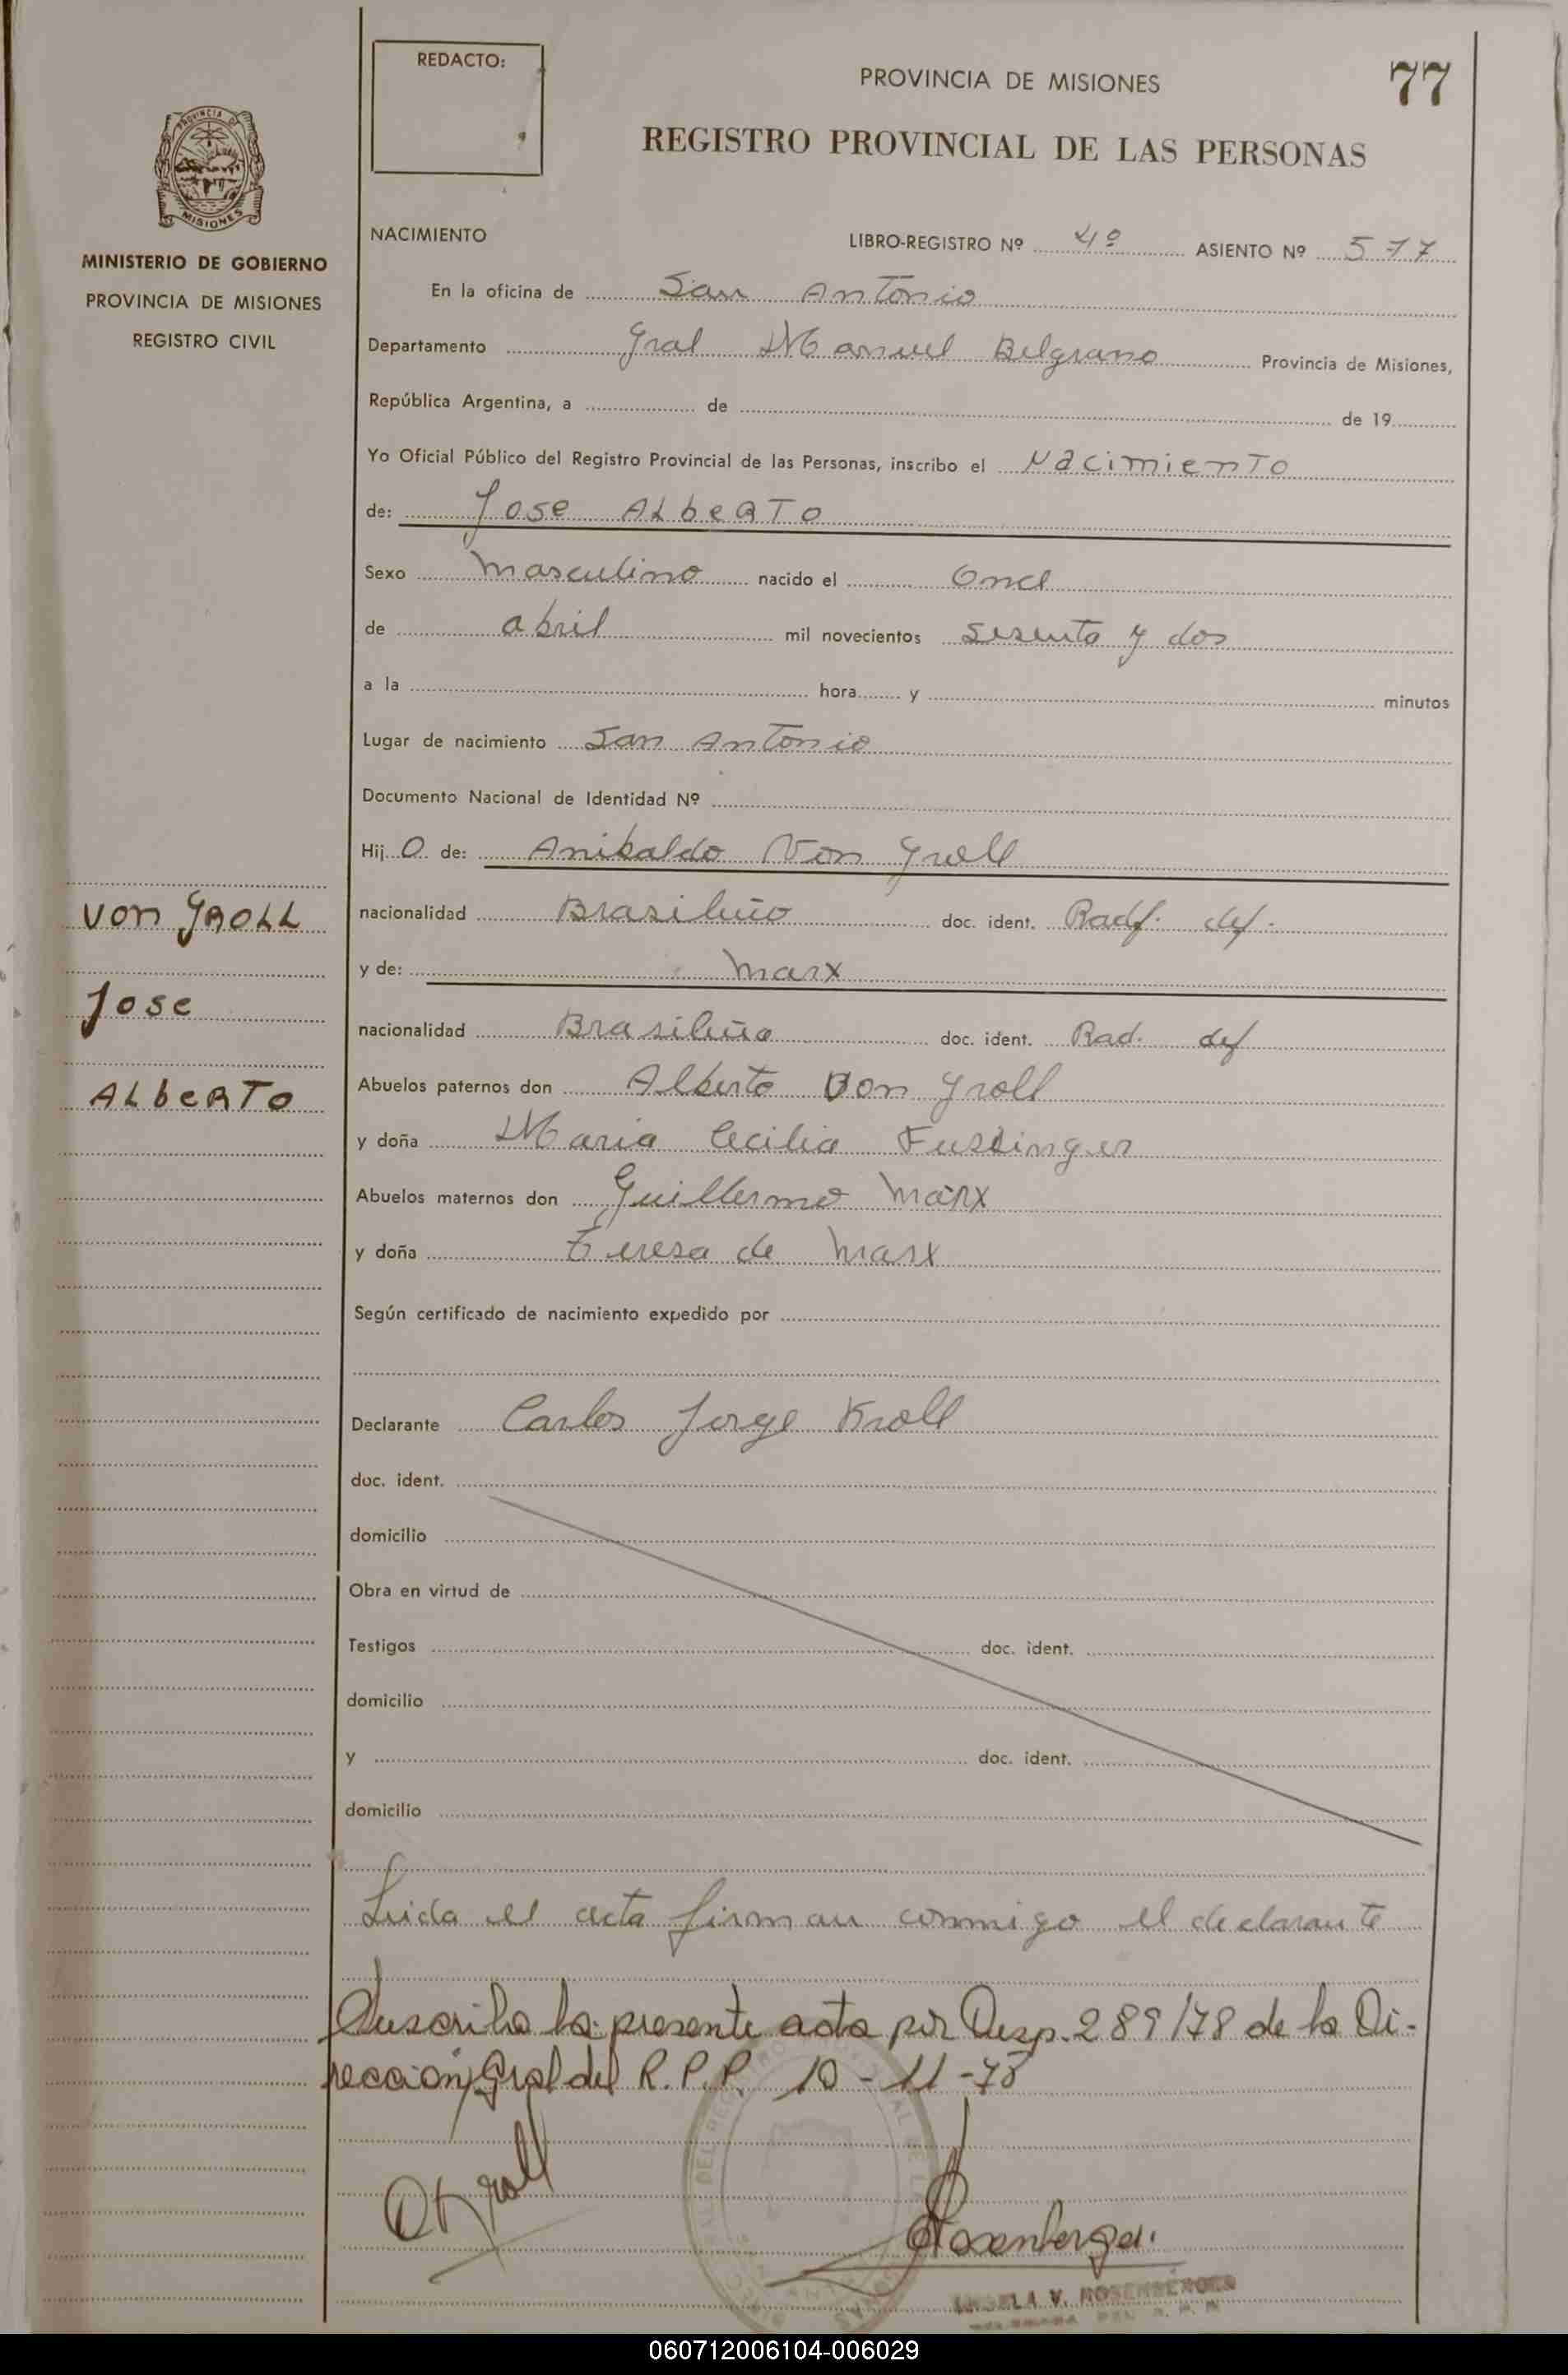 REDACTO:
PROVINCIA DE MISIONES
77
REGISTRO PROVINCIAL DE LAS PERSONAS
PROVINCIA DE
MISIONES
MINISTERIO DE GOBIERNO
PROVINCIA DE MISIONES
REGISTRO CIVIL
NACIMIENTO LIBRO-REGISTRO Nº 4º ASIENTO Nº 577
En la oficina de San Antonio
Departamento Gral Manuel Belgrano Provincia de Misiones,
República Argentina, a de de 19
Yo Oficial Público del Registro Provincial de las Personas, inscribo el Nacimiento
de: Jose ALbeRTo
Sexo masculino nacido el Once
de abril mil novecientos sesenta y dos
a la hora y minutos
Lugar de nacimiento San Antonio
Documento Nacional de Identidad Nº
Hij o de: Anibaldo Von Groll
nacionalidad Brasileño doc. ident. Radf. def.
y de: Marx
nacionalidad Brasileña doc. ident. Rad. def
Abuelos paternos don Alberto Von Groll
y doña Maria Cecilia
Abuelos maternos don Guillermo Marx
y doña Teresa de Marx
Según certificado de nacimiento expedido por
Declarante Carlos Jorge Kroll
doc. ident.
domicilio
Obra en virtud de
Testigos doc. ident.
domicilio
y doc. ident.
domicilio
von GROLL
Jose
ALbeRTo
Leida el acta firman conmigo el declarante
Suscribo la presente acta por Desp. 289/78 de la Di-
rección Gral del R.P.P. 10-11-78
Rosenberger
V. ROSENBERGER
060712006104-006029